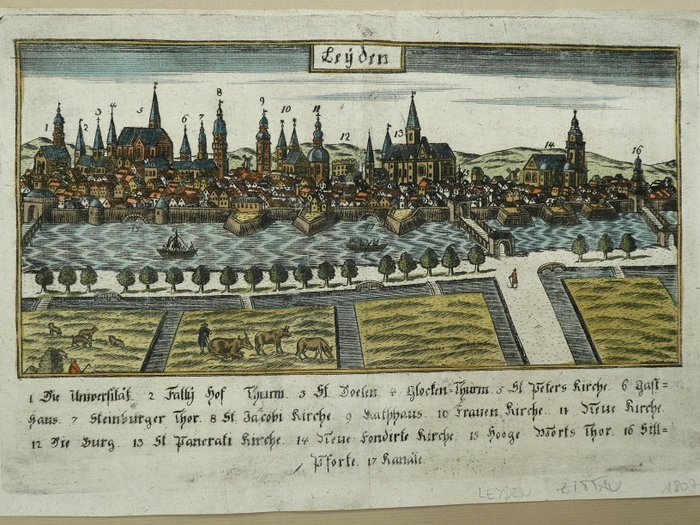 Leÿden
1 2 3 4 5 6 7 8 9 10 11 12 13 14 16
1 Die Universität. 2 Fallij Hof Thurm. 3 St. Doelen 4 Glocken-Thurm. 5 St. Peters Kirche. 6 Gast-
Haus. 7 Steinburger Thor. 8 St. Jacobi Kirche. 9 Rathhaus. 10 Frauen Kirche. 11 Neue Kirche
12 Die Burg. 13 St Pancrati Kirche. 14 Neue Fondirte Kirche. 15 Hooge Woorts Thor. 16 Sill-
Pforte. 17 Kanäle.
LEYDEN ZITTAU 1807